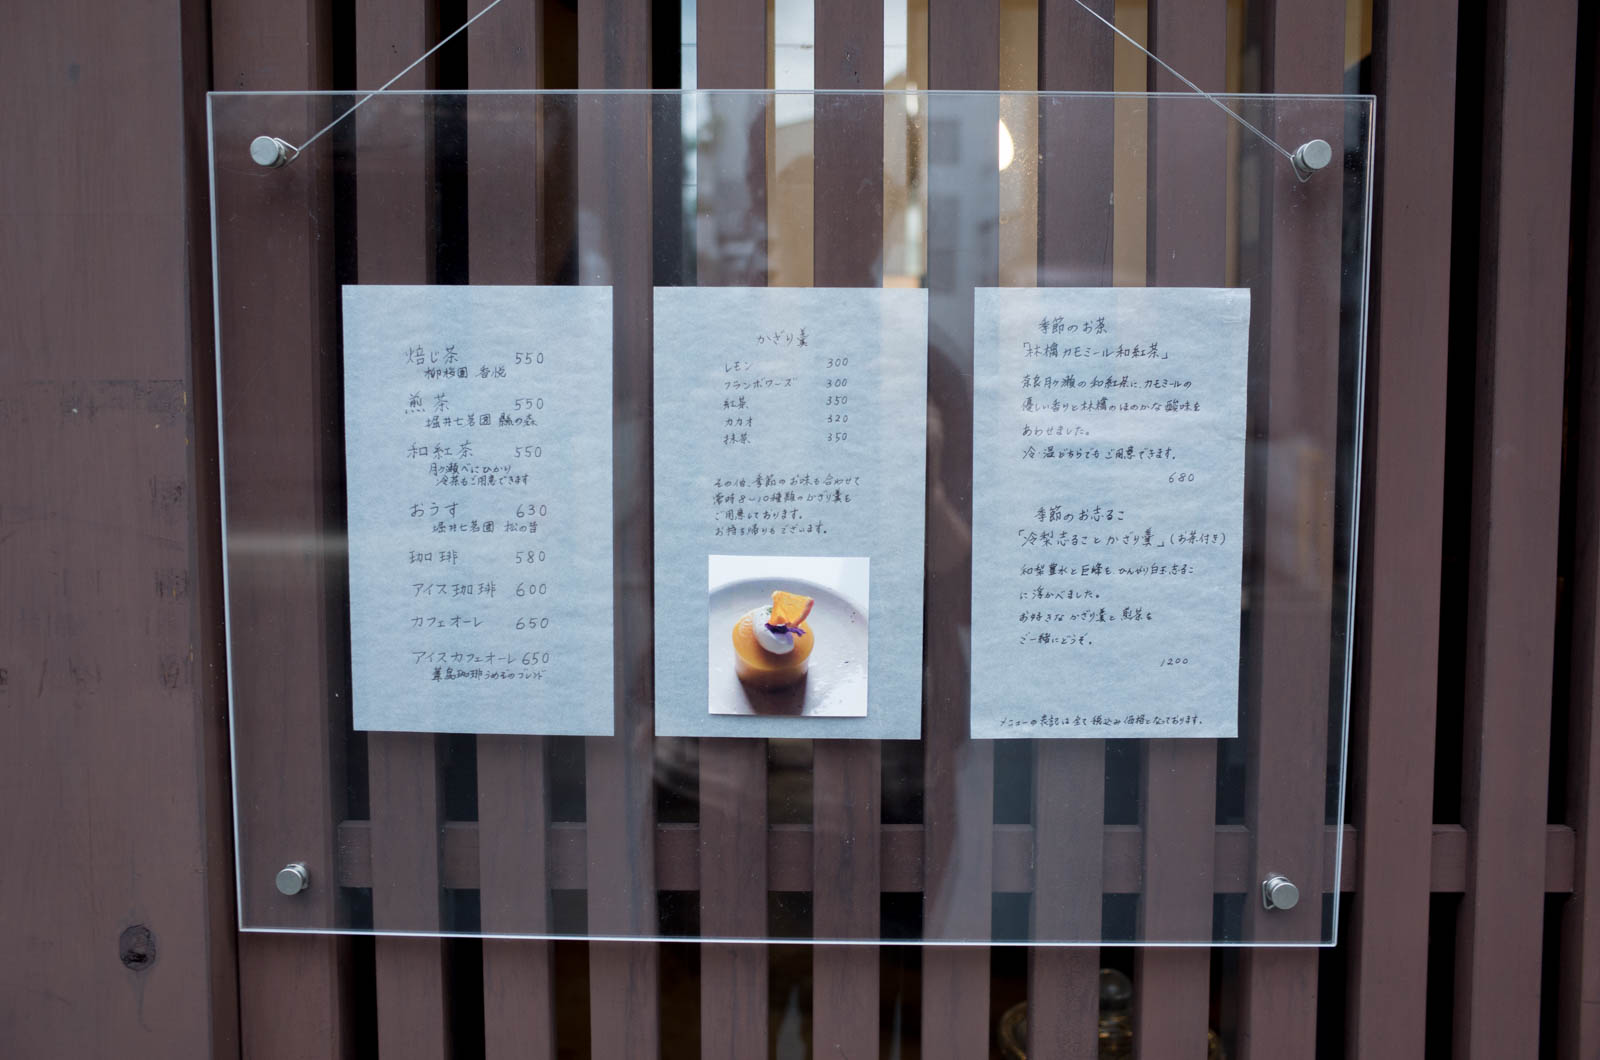 焙じ茶 550
柳桜園 香悦
煎茶 550
堀井七茗園 縣の森
和紅茶 550
月ヶ瀬べにひかり
冷茶もご用意できます
おうす 630
堀井七茗園 松の昔
珈琲 580
アイス珈琲 600
カフェオーレ 650
アイスカフェオーレ 650
葉島珈琲 うめぞのブレンド
かざり羹
レモン 300
フランボワーズ 300
紅茶 350
カカオ 320
抹茶 350
その他、季節のお味も合わせて
常時8〜10種類のかざり羹を
ご用意しております。
お持ち帰りもございます。
季節のお茶
「林檎カモミール和紅茶」
奈良月ヶ瀬の和紅茶に、カモミールの
優しい香りと林檎のほのかな酸味を
あわせました。
冷・温どちらでもご用意できます。
680
季節のお志るこ
「冷梨志ること かざり羹」(お茶付き)
和梨豊水と巨峰を、ひんやり白玉志るこ
に浮かべました。
お好きなかざり羹と煎茶を
ご一緒にどうぞ。
1200
メニューの表記は全て税込み価格となっております。